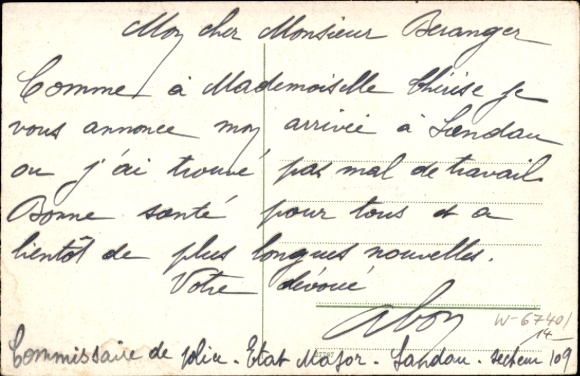 Mon cher Monsieur Beranger
Comme à Mademoiselle Thérèse je
vous annonce mon arrivée à Landau
ou j'ai trouvé pas mal de travail.
Bonne santé pour tous et a
bientôt de plus longues nouvelles.
Votre dévoué
W-6740/
14-
Commissaire de police - Etat Major - Landau - secteur 109